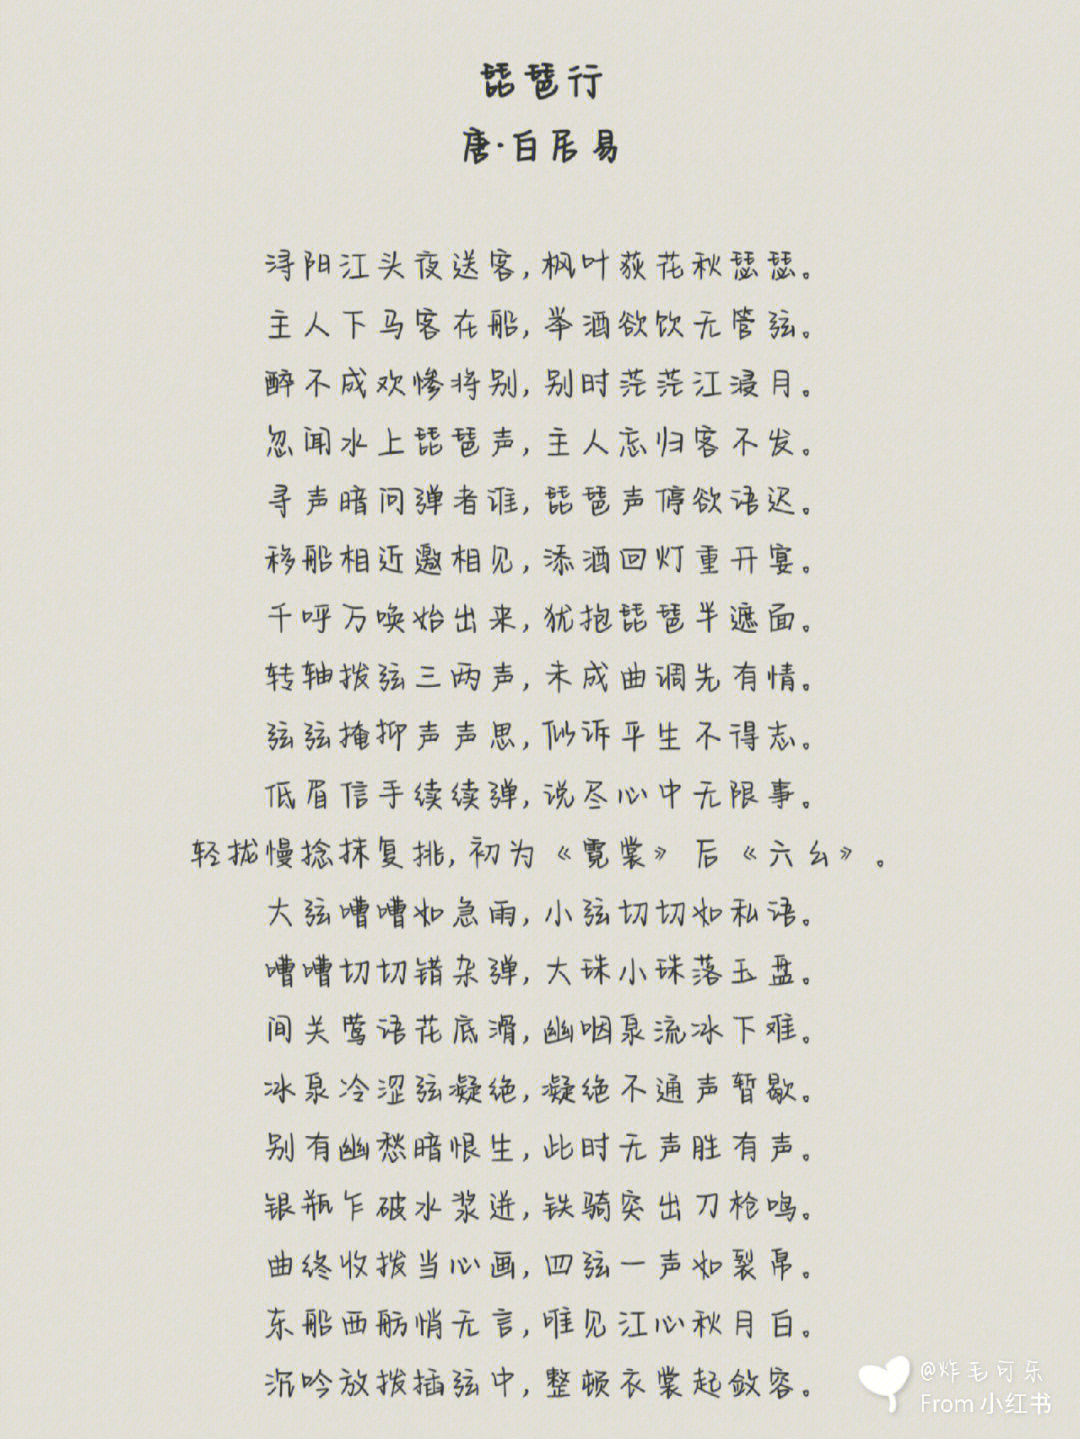 琵琶行
唐·白居易
浔阳江头夜送客,枫叶荻花秋瑟瑟。
主人下马客在船,举酒欲饮无管弦。
醉不成欢惨将别,别时茫茫江浸月。
忽闻水上琵琶声,主人忘归客不发。
寻声暗问弹者谁,琵琶声停欲语迟。
移船相近邀相见,添酒回灯重开宴。
千呼万唤始出来,犹抱琵琶半遮面。
转轴拨弦三两声,未成曲调先有情。
弦弦掩抑声声思,似诉平生不得志。
低眉信手续续弹,说尽心中无限事。
轻拢慢捻抹复挑,初为《霓裳》后《六幺》。
大弦嘈嘈如急雨,小弦切切如私语。
嘈嘈切切错杂弹,大珠小珠落玉盘。
间关莺语花底滑,幽咽泉流冰下难。
冰泉冷涩弦凝绝,凝绝不通声暂歇。
别有幽愁暗恨生,此时无声胜有声。
银瓶乍破水浆迸,铁骑突出刀枪鸣。
曲终收拨当心画,四弦一声如裂帛。
东船西舫悄无言,唯见江心秋月白。
沉吟放拨插弦中,整顿衣裳起敛容。
@炸毛可乐
From 小红书